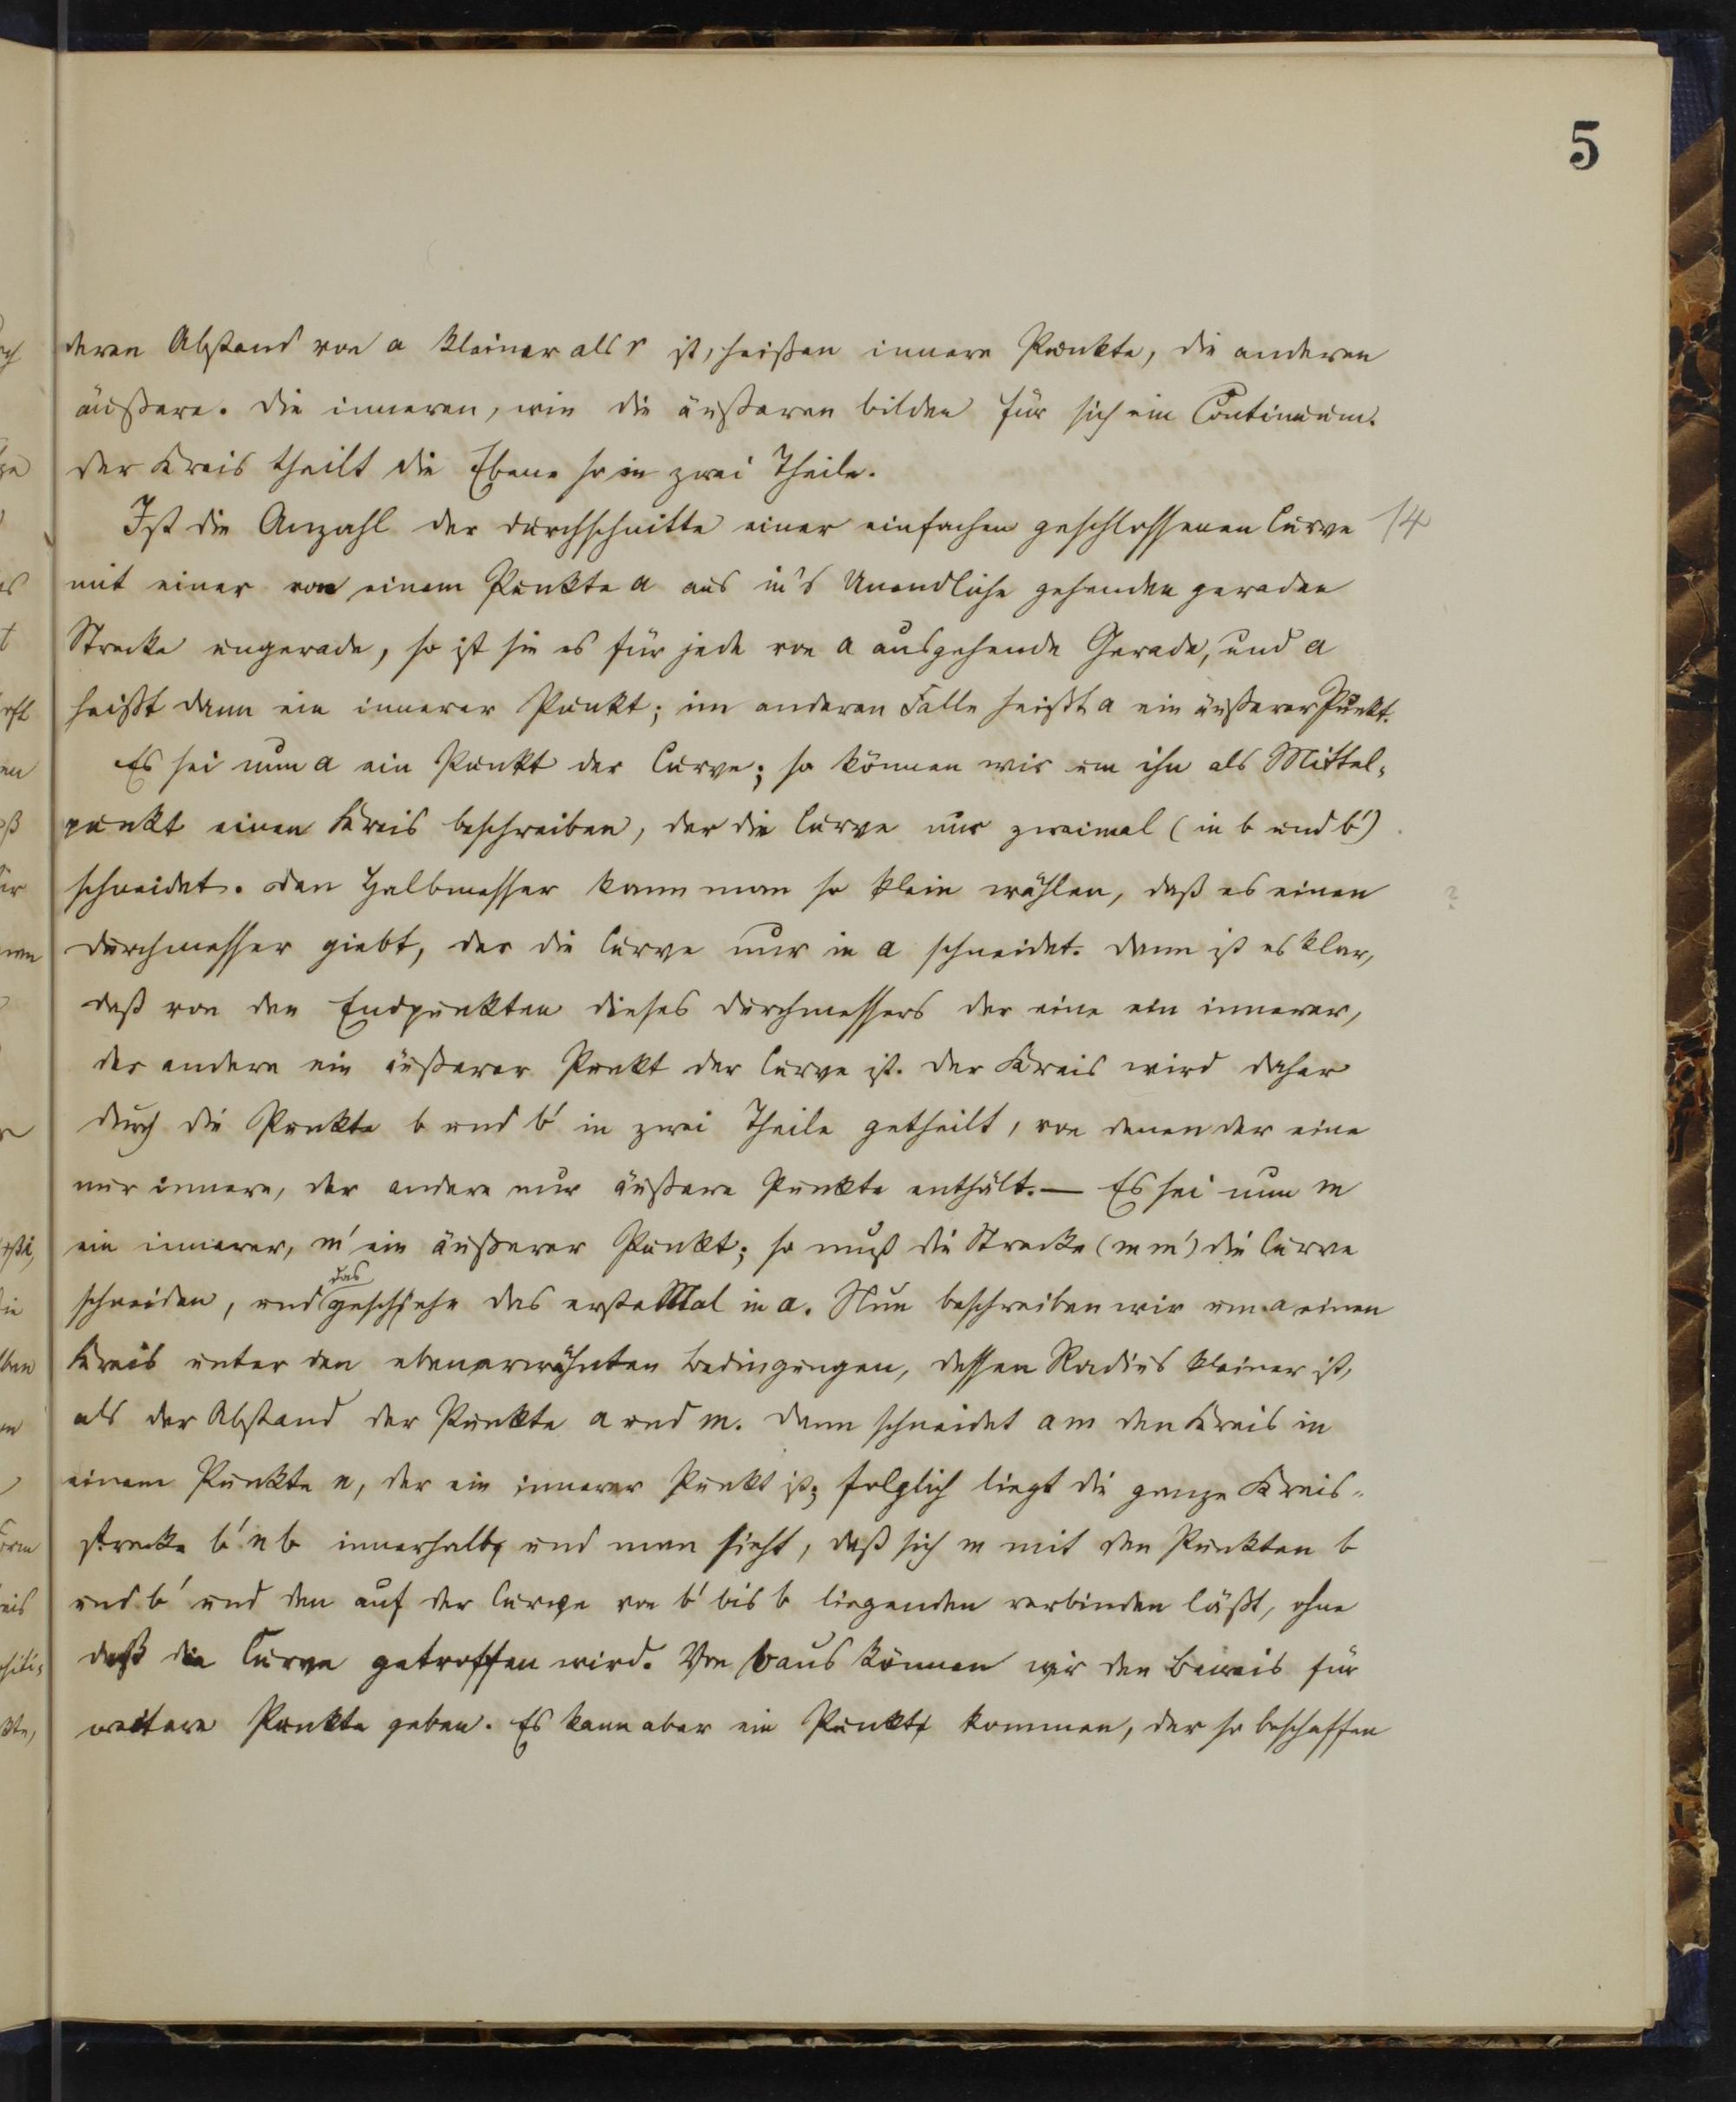 5
deren Abstand von a kleiner als r ist, heißen innere Punkte, die anderen
äußere. Die inneren, wie die äußeren bilden für sich ein Continuum.
Der Kreis theilt die Ebene so in zwei Theile.
Ist die Anzahl der Durchschnitte einer einfachen geschlossenen Curve 14
mit einer von einem Punkte a aus in's Unendliche gehenden geraden
Strecke ungerade, so ist sie es für jede von a ausgehende Gerade, und a
heißt dann ein innerer Punkt; im anderen Falle heißt a ein äußerer Punkt.
Es sei nun a ein Punkt der Curve; so können wir um ihn als Mittel-
punkt einen Kreis beschreiben, der die Curve nur zweimal (in b und b')
schneidet. Den Halbmesser kann man so klein wählen, daß es einen ?
Durchmesser giebt, der die Curve nur in a schneidet. Dann ist es klar,
daß von den Endpunkten dieses Durchmessers der eine ein innerer,
der andere ein äußerer Punkt der Curve ist. Der Kreis wird daher
durch die Punkte b und b' in zwei Theile getheilt, von denen der eine
nur innere, der andere nur äußere Punkte enthält. — Es sei nun m
ein innerer, m' ein äußerer Punkt; so muß die Strecke (m m') die Curve
schneiden, und das geschehe das erste Mal in a. Nun beschreiben wir um a einen
Kreis unter den ebenerwähnten Bedingungen, dessen Radius kleiner ist,
als der Abstand der Punkte a und m. Dann schneidet a m den Kreis in
einem Punkte n, der ein innerer Punkt ist; folglich liegt die ganze Kreis-
strecke b' n b innerhalb, und man sieht, daß sich m mit den Punkten b
und b' und den auf der Curve von b' bis b liegenden verbinden läßt, ohne
daß die Curve getroffen wird. Von b aus können wir den Beweis für
weitere Punkte geben. Es kann aber ein Punkt kommen, der so beschaffen